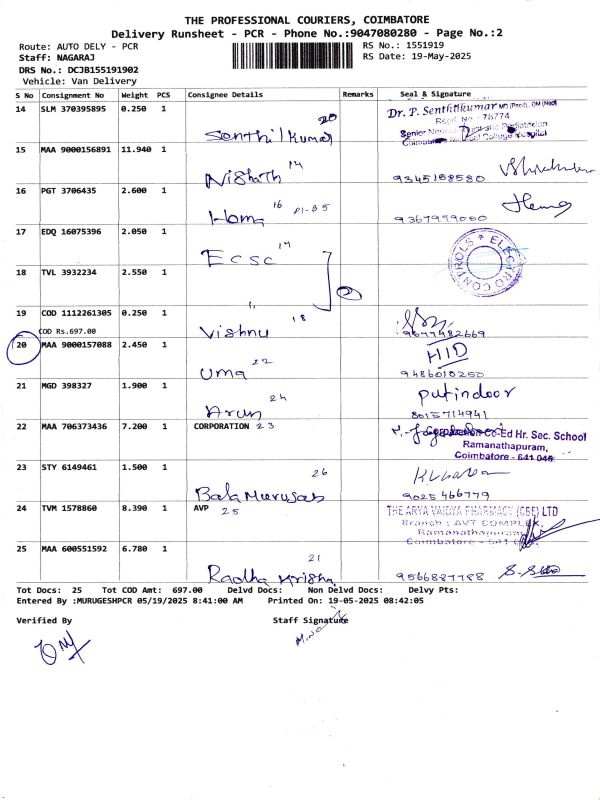 THE PROFESSIONAL COURIERS, COIMBATORE
Delivery Runsheet - PCR - Phone No.:9047080280 - Page No.:2
Route: AUTO DELY - PCR
RS No.: 1551919
Staff: NAGARAJ
RS Date: 19-May-2025
DRS No.: DCJB155191902
Vehicle: Van Delivery
S No Consignment No Weight PCS Consignee Details Remarks Seal & Signature
14 SLM 370395895 0.250 1
20
Senthil Kumar
Dr. P. Senthilkumar
Regd No - 78774
15 MAA 9000156891 11.940 1
14
Nishath
9345158580
16 PGT 3706435 2.600 1
16
Homa
9367999060
17 EDQ 16075396 2.050 1
ECSC
ELECTRO CONTROLS
18 TVL 3932234 2.550 1
2
19 COD 1112261305 0.250 1
COD Rs.697.00
18
Vishnu
20 MAA 9000157088 2.450 1
HID
22
Uma
9486010250
21 MGD 398327 1.900 1
24
Arun
Putindoor
8015714941
22 MAA 706373436 7.200 1 CORPORATION 23
Co-Ed Hr. Sec. School
Ramanathapuram,
Coimbatore - 641 045
23 STY 6149461 1.500 1
26
Bala Murugan
9025466779
24 TVM 1578860 8.390 1 AVP
25
THE ARYA VAIDYA PHARMACY (CBE) LTD
Branch : AVT COMPLEX,
Ramanathapuram
Coimbatore - 641
25 MAA 600551592 6.780 1
21
Radha Krishna
9566887788
Tot Docs: 25 Tot COD Amt: 697.00 Delvd Docs: Non Delvd Docs: Delvy Pts:
Entered By :MURUGESHPCR 05/19/2025 8:41:00 AM Printed On: 19-05-2025 08:42:05
Verified By Staff Signature